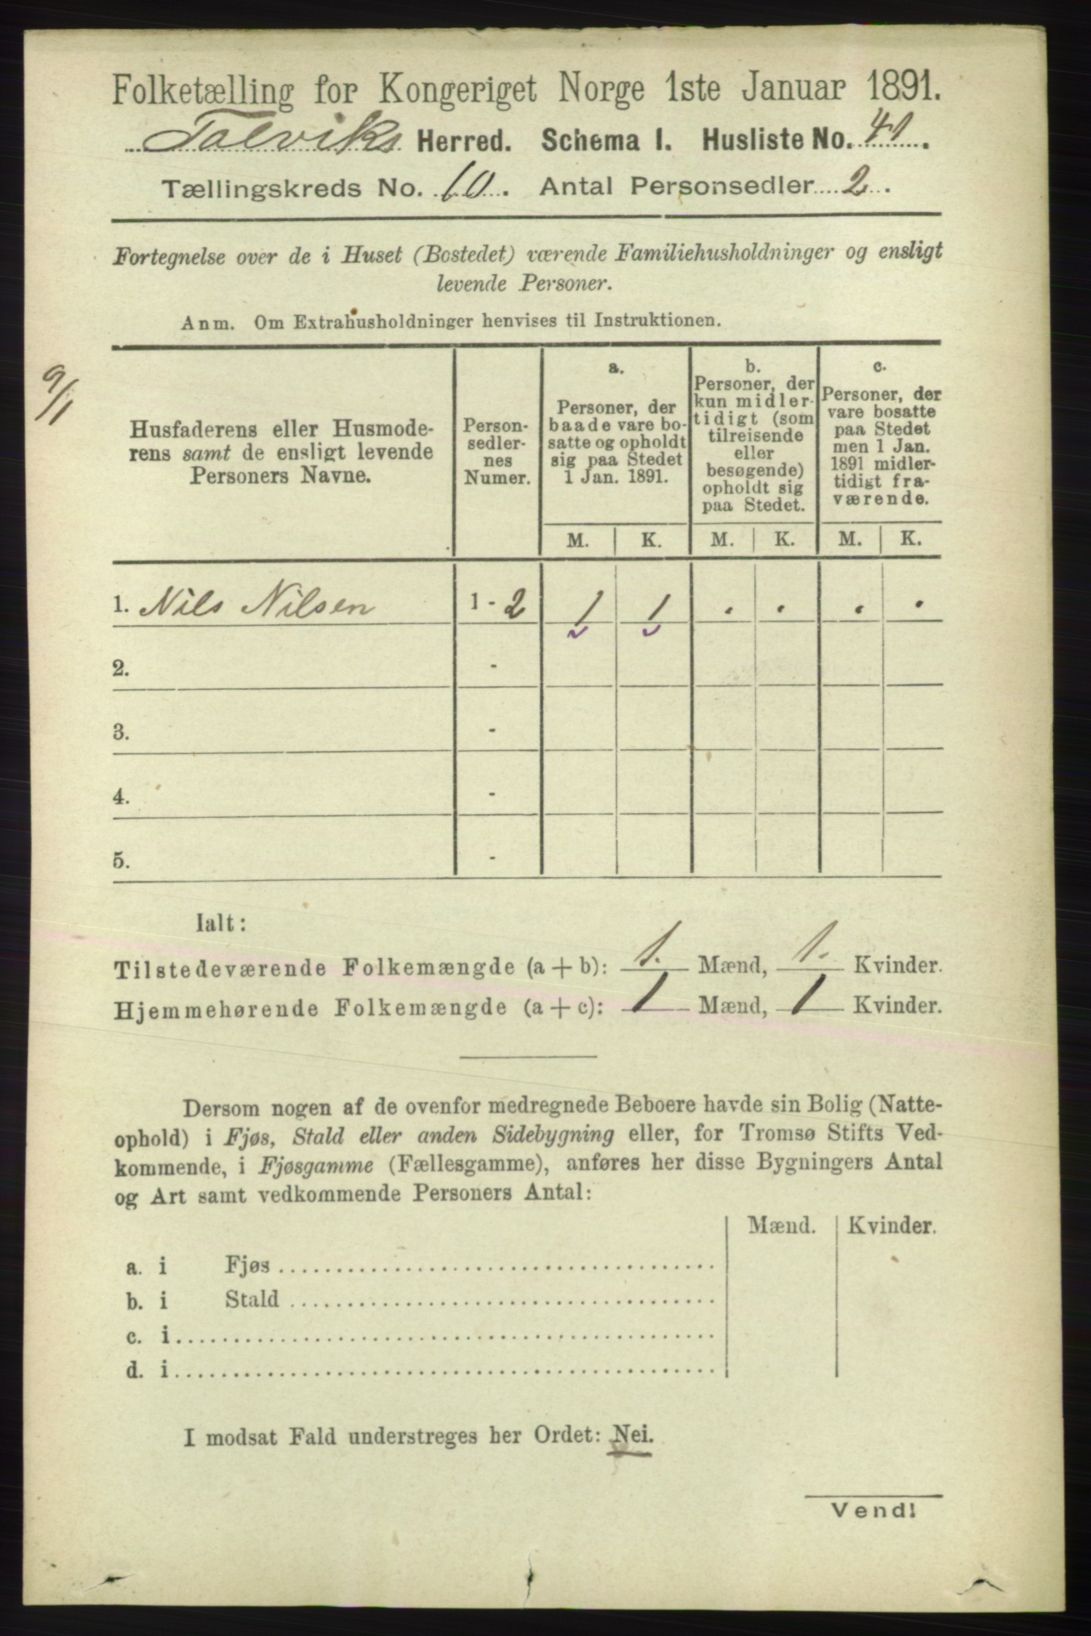 Folketælling for Kongeriget Norge 1ste Januar 1891.
Talviks Herred. Schema I. Husliste No. 41.
Tællingskreds No. 10. Antal Personsedler 2.
Fortegnelse over de i Huset (Bostedet) værende Familiehusholdninger og ensligt
levende Personer.
Anm. Om Extrahusholdninger henvises til Instruktionen.
9/1
Husfaderens eller Husmode-
rens samt de ensligt levende
Personers Navne.
Person-
sedler-
nes
Numer.
a.
Personer, der
baade vare bo-
satte og opholdt
sig paa Stedet
1 Jan. 1891.
b.
Personer, der
kun midler-
tidigt (som
tilreisende
eller
besøgende)
opholdt sig
paa Stedet.
c.
Personer, der
vare bosatte
paa Stedet
men 1 Jan.
1891 midler-
tidigt fra-
værende.
M. K. M. K. M. K.
1. Nils Nilsen 1 - 2 1 1 . . . .
2. -
3. -
4. -
5. -
Ialt:
Tilstedeværende Folkemængde (a + b): 1. Mænd, 1. Kvinder.
Hjemmehørende Folkemængde (a + c): 1 Mænd, 1 Kvinder.
Dersom nogen af de ovenfor medregnede Beboere havde sin Bolig (Natte-
ophold) i Fjøs, Stald eller anden Sidebygning eller, for Tromsø Stifts Ved-
kommende, i Fjøsgamme (Fællesgamme), anføres her disse Bygningers Antal
og Art samt vedkommende Personers Antal:
Mænd. Kvinder.
a. i Fjøs
b. i Stald
c. i
d. i
I modsat Fald understreges her Ordet: Nei.
Vend!